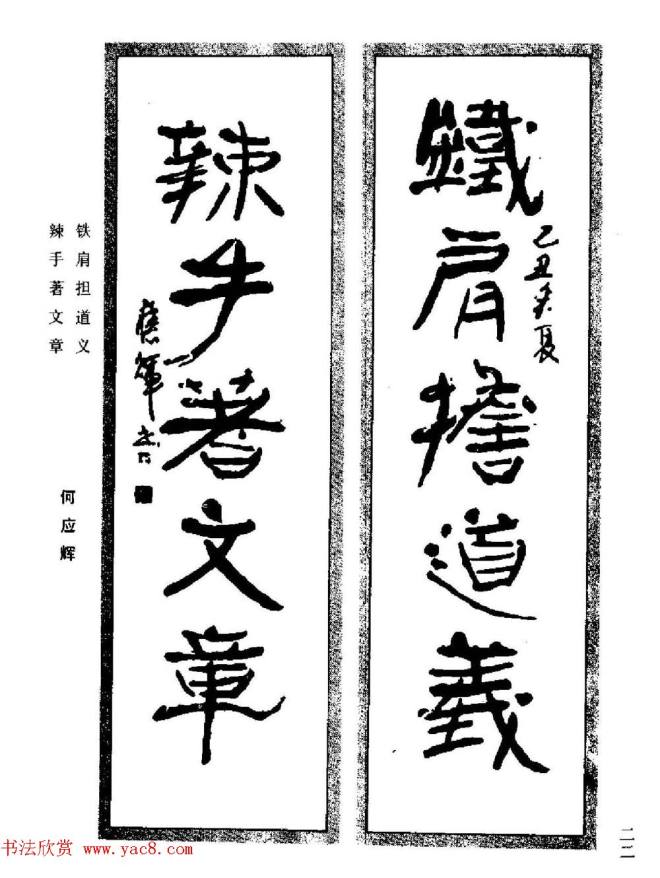 鐵肩擔道義
乙丑炎夏
辣手著文章
應輝书
铁肩担道义
辣手著文章
何应辉
二二
书法欣赏 www.yac8.com